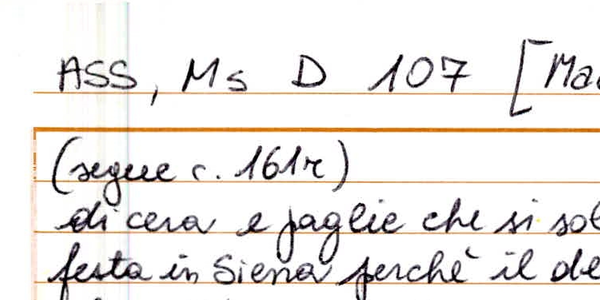 ASS, Ms D 107 [Ma
(segue c. 161r)
di cera e paglie che si sol
festa in Siena perchè il de